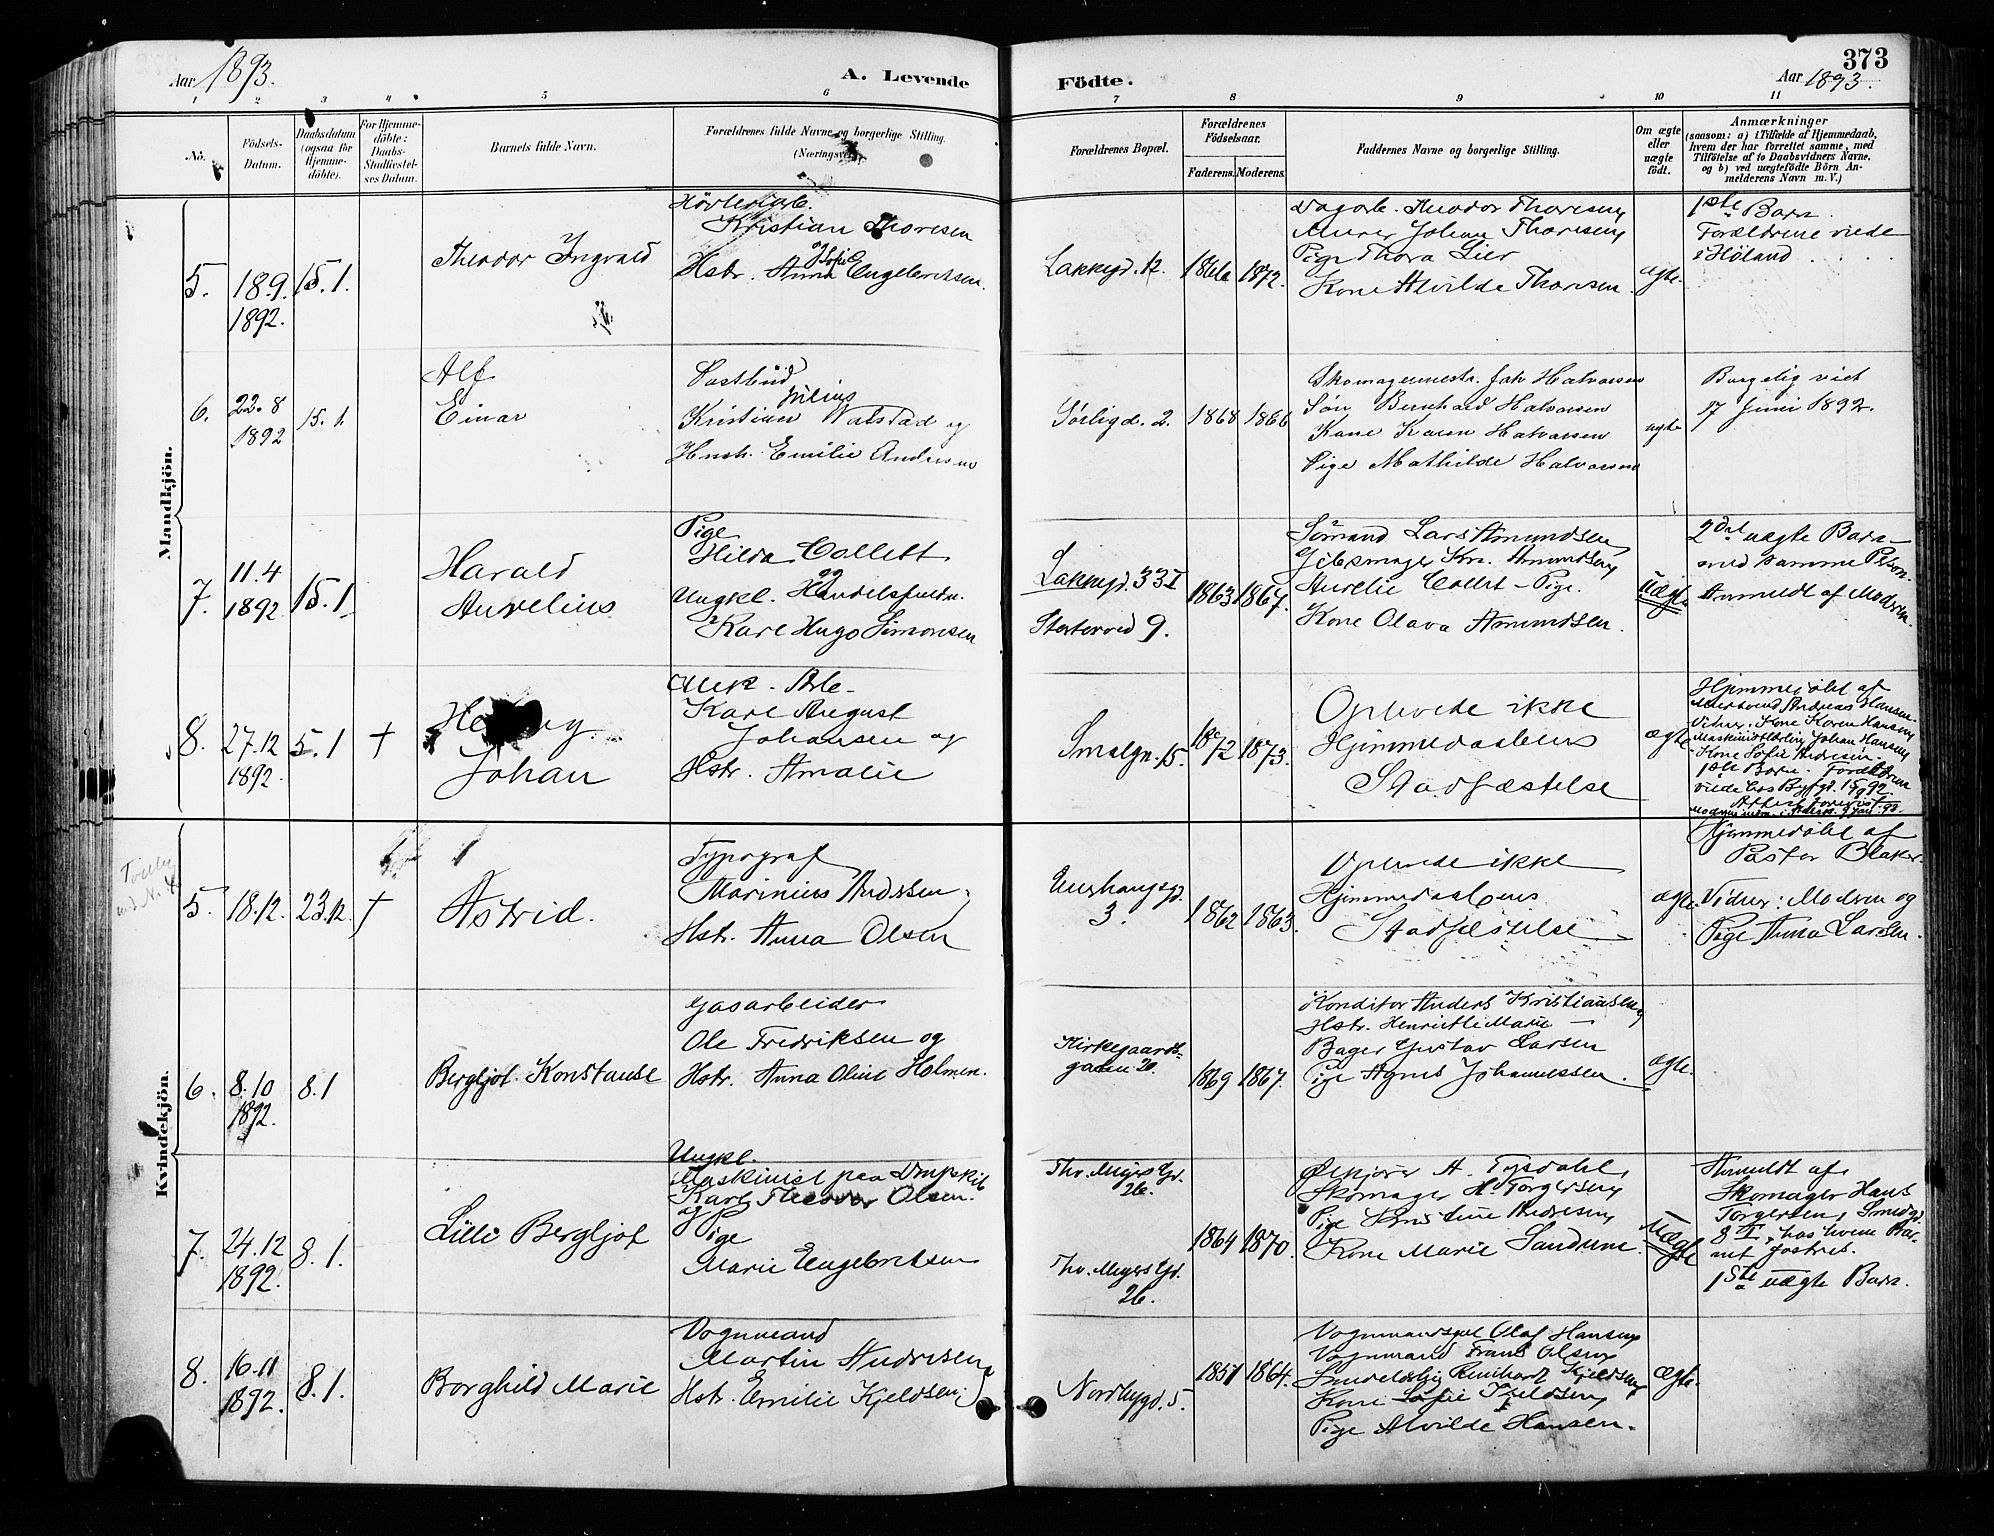 373
Aar 1893.
A. Levende Födte.
Aar 1893.
1 2 3 4 5 6 7 8 9 10 11
No.
Födsels-Datum.
Daabsdatum (ogsaa for Hjemme-döbte).
For Hjemme-döbte: Daabs-Stadfæstel-ses Datum.
Barnets fulde Navn.
Forældrenes fulde Navne og borgerlige Stilling.
(Næringsvei).
Forældrenes Bopæl.
Forældrenes Födselsaar.
Faderens. Moderens.
Faddernes Navne og borgerlige Stilling.
Om ægte eller uægte födt.
Anmærkninger
(saasom: a) i Tilfælde af Hjemmedaab,
hvem der har forrettet samme, med
Tilföielse af to Daabsvidners Navne,
og b) ved uægtefödte Börn An-
melderens Navn m. V.)
Mandkjön.
5.
18.9.
1892.
15.1.
Theodor Ingvald
Kristian Thoresen
og Sofie
Hstr. Anna Engebretsen.
Lakkegd. 12.
1872.
Dagarb. Theodor Thoresen,
Murer Johan Thoresen,
Pige Thora Lier
Kone Alvilde Thoresen
ægte.
1ste Barn.
Forældrene viede
i Höland
6.
22.8
1892
15.1
Alf
Einar
Postbud
Julius
Kristian Walstad og
Hustr. Emilie Andersen
Sörligd. 2.
1868
1866
Skomagermestr. Joh Halvorsen
Sön Bernhard Halvorsen
Kone Karen Halvorsen
Pige Mathilde Halvorsen
ægte
Borgelig viet
17 Juni 1892.
7.
11.4
1892
15.1
Harald
Aurelius
Pige
Hilda Collett
og
Ungkl. Handelsfuldm.
Karl Hugo Simonsen
Lakkegd. 33 I
Storterved 9.
1863
1867.
Sömand Lars Amundsen,
Gibsmager Kr. Amundsen,
Aurelie Collet - Pige.
Kone Olava Amundsen.
Uægte
2det uægte Barn
med samme Person.
Anmeldt af Modren.
8.
27.12
1892.
5.1
+
Johan
Mek. Arb.
Karl August
Johansen og
Hstr. Amalie
Smalgn. 15.
1872
1873.
Oplevede ikke
Hjemmedaabens
Stadfæstelse
ægte
Hjemmedöbt af
Andreas Hansen.
Vidner: Kone Karen Hansen,
Maskinistlærling Johan Hansen,
Kone Sofie Andresen.
1ste Barn. Forældrene
viede hos Byfgd. 15/9 92.
Attest forevist
Kvindekjön.
5.
18.12.
23.12.
+
Astrid.
Typograf
Marinius Andersen,
Hstr. Anna Olsen
Enerhaugsgd.
3.
1862
1863.
Oplevede ikke
Hjemmedaabens
Stadfæstelse
ægte.
Hjemmedöbt af
Pastor Blaker.
Vidner: Modren og
Pige Anna Larsen.
6.
8.10
1892.
8.1
Bergljot Konstanse
Gasarbeider
Ole Fredriksen og
Hstr. Anna Oline Holmen.
Kirkegaards-
gaden 20.
1869
1867.
Konditor Anders Kristiansen,
Hstr. Henriette Marie —
Bager Gustav Larsen
Pige Agnes Johannessen.
ægte.
7.
24.12
1892.
8.1.
Lilli Bergljot
Ungkl.
Maskinist paa Dmpskib
Karl Theodor Olsen.
og
Pige
Marie Engebretsen
Thv. Meyers Gd.
26.
Thv. Meyers Gd.
26.
1864
1870.
A. Tysdahl,
Skomager H. Torgersen,
Pige Kristine Andresen,
Kone Marie Sandum.
Uægte
Anmeldt af
Skomager Hans
Torgersen, Smedgd.
8 I, hos hvem Bar-
net fostres.
1ste uægte Barn.
8.
16.11
1892.
8.1.
Borghild Marie
Vognmand
Martin Andresen,
Hstr. Emilie Kjeldsen.
Nordbygd. 5.
1851
1864.
Olaf Hansen,
Vognmand Frans Olsen,
Reinhart Kjeldsen,
Kone Sofie Kjeldsen,
Pige Alvilde Hansen.
ægte.